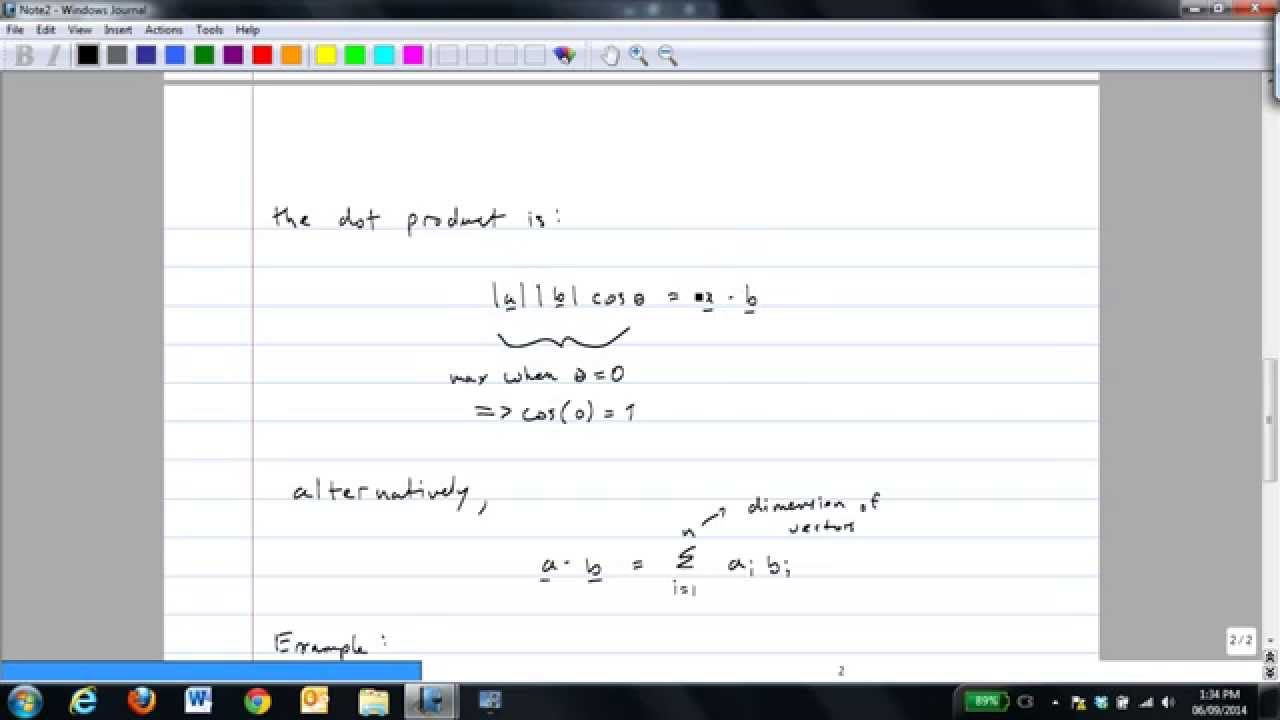 Note2 - Windows Journal
File Edit View Insert Actions Tools Help
B I
the dot product is:
|a| |b| cos θ = a · b
max when θ = 0
=> cos(0) = 1
alternatively,
dimension of
vectors
n
a · b = Σ aᵢ bᵢ
i=1
Example:
2/2
2
89%
1:34 PM
06/09/2014